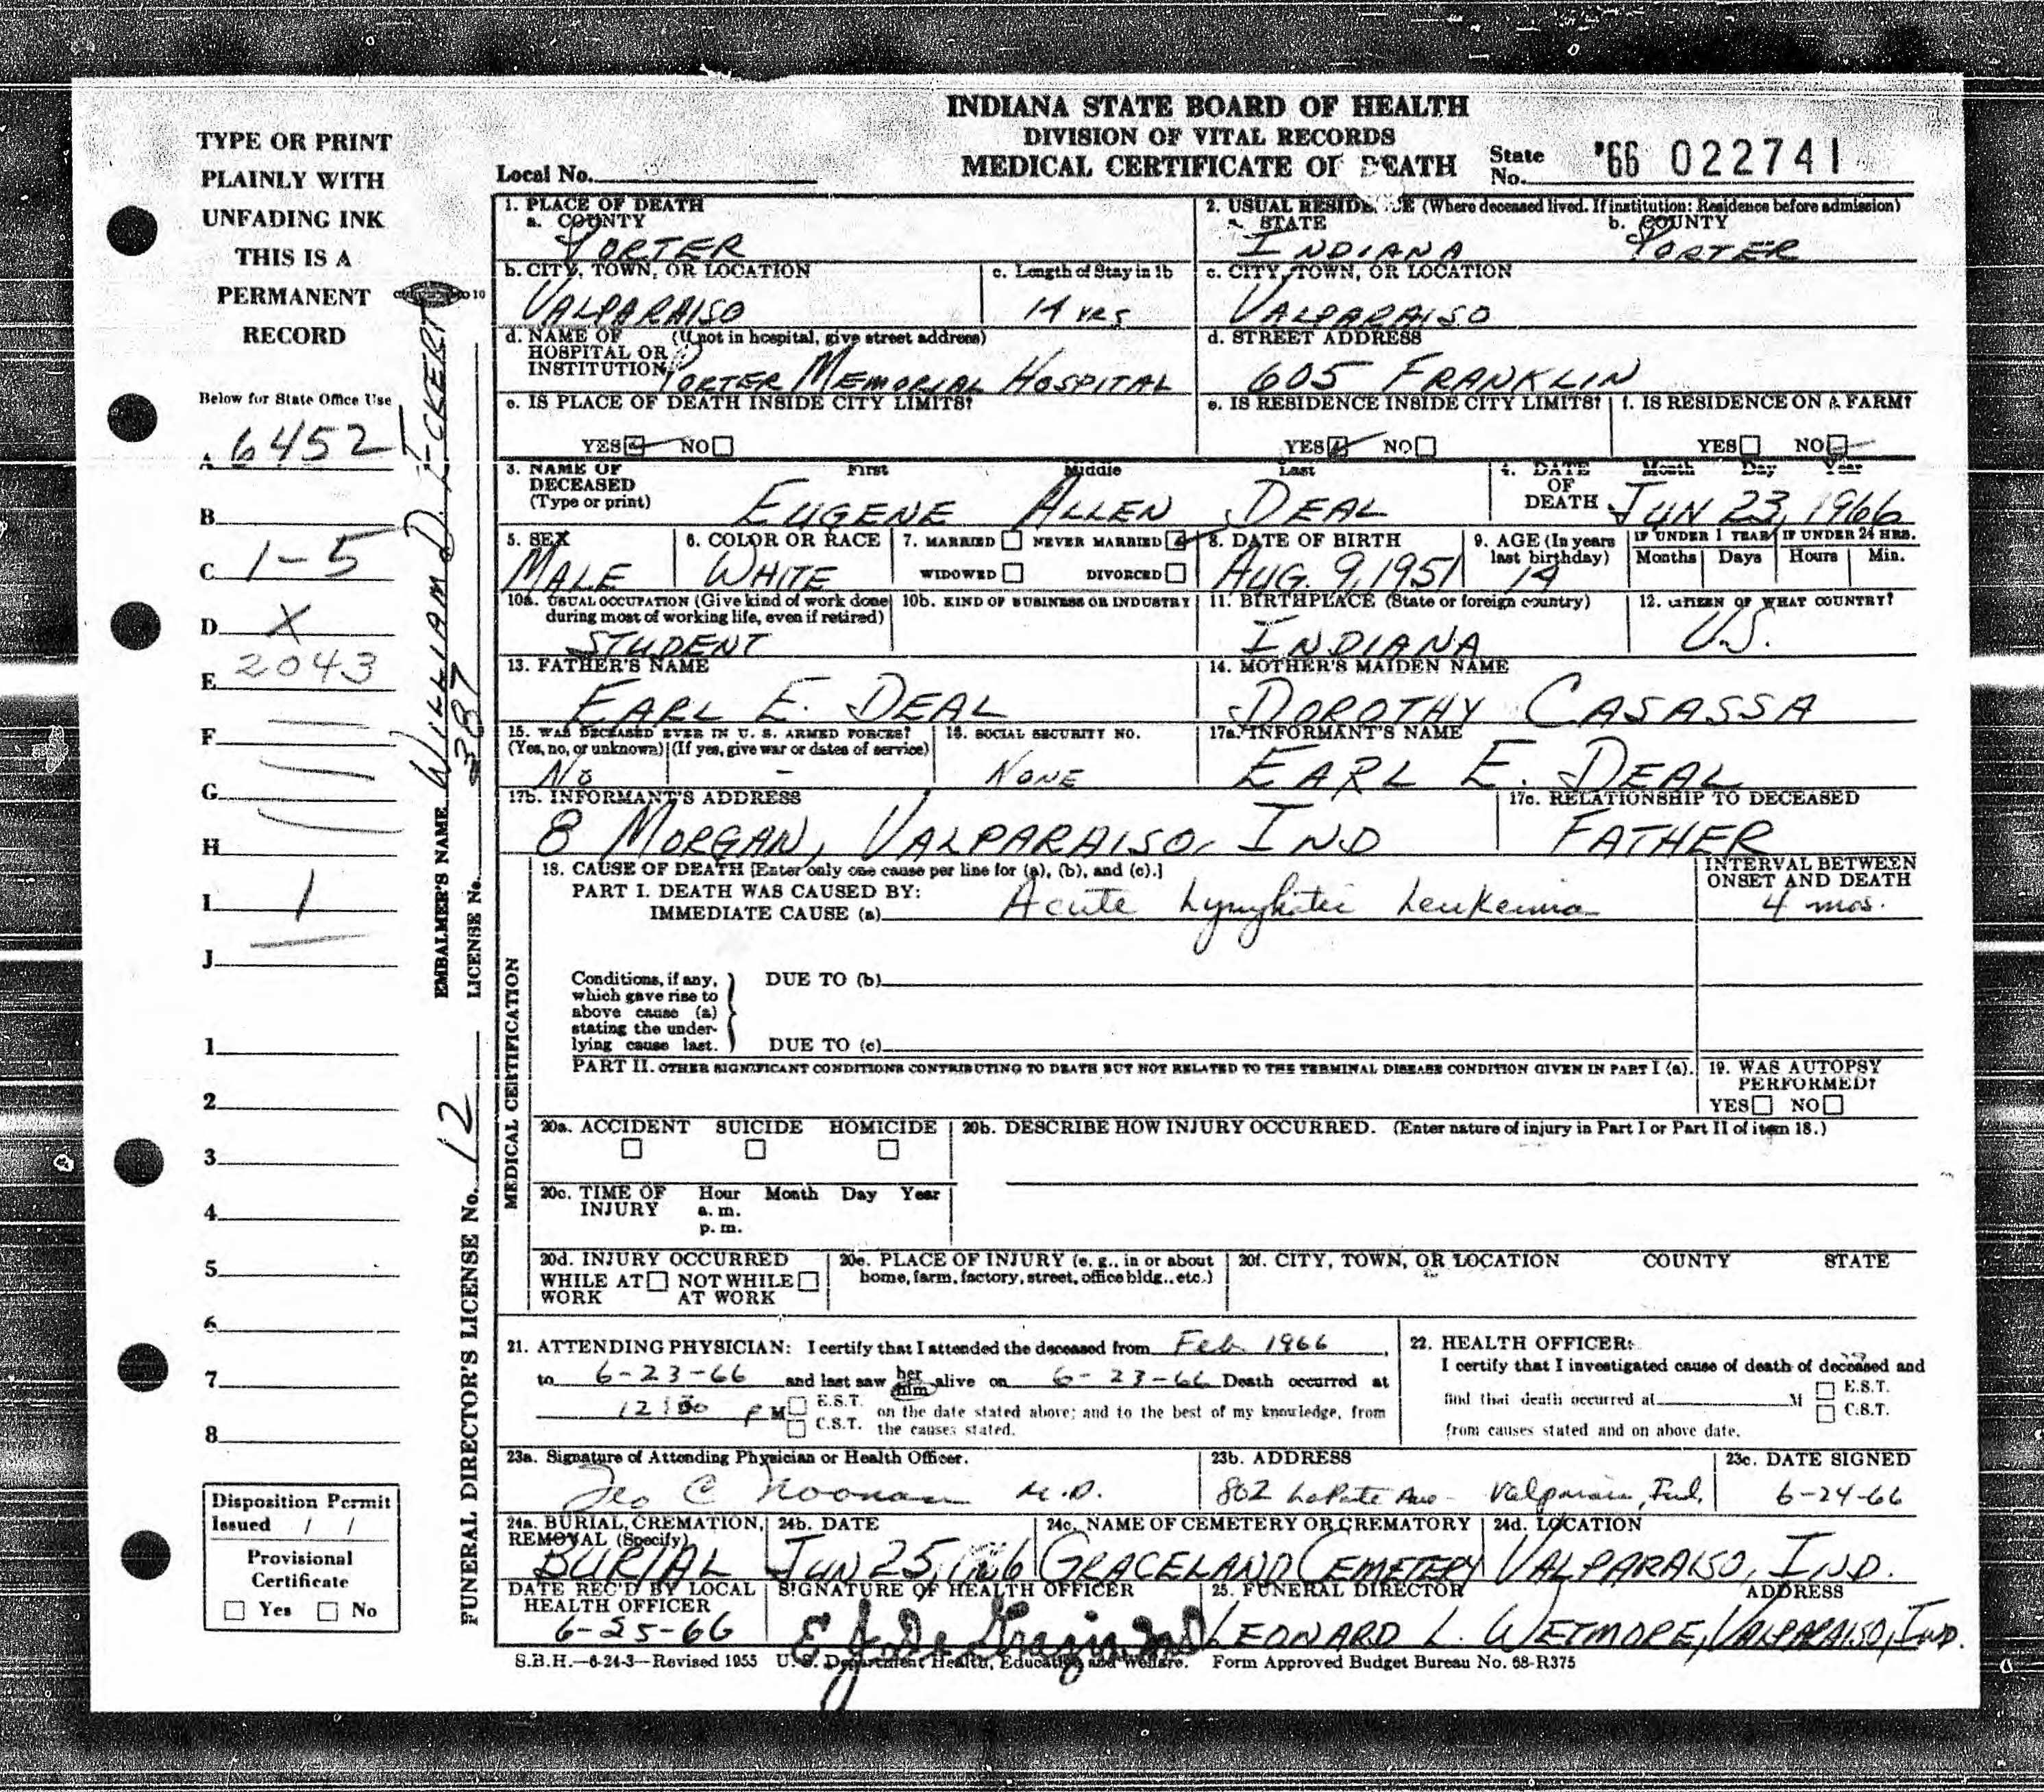 INDIANA STATE BOARD OF HEALTH
DIVISION OF VITAL RECORDS
MEDICAL CERTIFICATE OF DEATH
Local No.
State No. '66 022741
TYPE OR PRINT
PLAINLY WITH
UNFADING INK
THIS IS A
PERMANENT
RECORD
Below for State Office Use
A 6452
B
C 1-5
D X
E 2043
F
G
H
I 1
J
1
2
3
4
5
6
7
8
Disposition Permit
Issued / /
Provisional
Certificate
Yes No
EMBALMER'S NAME WILLIAM D. ECKERT
LICENSE No. 387
FUNERAL DIRECTOR'S LICENSE No. 12
1. PLACE OF DEATH
a. COUNTY
PORTER
2. USUAL RESIDENCE (Where deceased lived. If institution: Residence before admission)
a. STATE b. COUNTY
INDIANA PORTER
b. CITY, TOWN, OR LOCATION c. Length of Stay in 1b
VALPARAISO 14 YRS
c. CITY, TOWN, OR LOCATION
VALPARAISO
d. NAME OF (If not in hospital, give street address)
HOSPITAL OR
INSTITUTION PORTER MEMORIAL HOSPITAL
d. STREET ADDRESS
605 FRANKLIN
e. IS PLACE OF DEATH INSIDE CITY LIMITS?
YES NO
e. IS RESIDENCE INSIDE CITY LIMITS? f. IS RESIDENCE ON A FARM?
YES NO YES NO
3. NAME OF DECEASED (Type or print) First Middle Last
EUGENE ALLEN DEAL
4. DATE OF DEATH Month Day Year
JUN 23, 1966
5. SEX 6. COLOR OR RACE 7. MARRIED NEVER MARRIED WIDOWED DIVORCED
MALE WHITE
8. DATE OF BIRTH 9. AGE (In years last birthday) IF UNDER 1 YEAR Months Days IF UNDER 24 HRS. Hours Min.
AUG. 9, 1951 14
10a. USUAL OCCUPATION (Give kind of work done during most of working life, even if retired) 10b. KIND OF BUSINESS OR INDUSTRY
STUDENT
11. BIRTHPLACE (State or foreign country) 12. CITIZEN OF WHAT COUNTRY?
INDIANA U.S.
13. FATHER'S NAME 14. MOTHER'S MAIDEN NAME
EARL E. DEAL DOROTHY CASASSA
15. WAS DECEASED EVER IN U. S. ARMED FORCES? 16. SOCIAL SECURITY NO. 17a. INFORMANT'S NAME
(Yes, no, or unknown) (If yes, give war or dates of service)
NO - NONE EARL E. DEAL
17b. INFORMANT'S ADDRESS 17c. RELATIONSHIP TO DECEASED
8 MORGAN, VALPARAISO, IND FATHER
MEDICAL CERTIFICATION
18. CAUSE OF DEATH [Enter only one cause per line for (a), (b), and (c).]
INTERVAL BETWEEN
ONSET AND DEATH
PART I. DEATH WAS CAUSED BY:
IMMEDIATE CAUSE (a) Acute Lymphatic Leukemia 4 mos.
Conditions, if any,
which gave rise to
above cause (a)
stating the under-
lying cause last.
DUE TO (b)
DUE TO (c)
PART II. OTHER SIGNIFICANT CONDITIONS CONTRIBUTING TO DEATH BUT NOT RELATED TO THE TERMINAL DISEASE CONDITION GIVEN IN PART I (a).
19. WAS AUTOPSY
PERFORMED?
YES NO
20a. ACCIDENT SUICIDE HOMICIDE
20b. DESCRIBE HOW INJURY OCCURRED. (Enter nature of injury in Part I or Part II of item 18.)
20c. TIME OF INJURY Hour Month Day Year
a. m.
p. m.
20d. INJURY OCCURRED
WHILE AT WORK NOT WHILE AT WORK
20e. PLACE OF INJURY (e. g., in or about home, farm, factory, street, office bldg., etc.)
20f. CITY, TOWN, OR LOCATION COUNTY STATE
21. ATTENDING PHYSICIAN: I certify that I attended the deceased from Feb 1966,
to 6-23-66 and last saw her him alive on 6-23-66 Death occurred at
P M E.S.T. C.S.T. on the date stated above; and to the best of my knowledge, from
the causes stated.
22. HEALTH OFFICER:
I certify that I investigated cause of death of deceased and
find that death occurred at M E.S.T. C.S.T.
from causes stated and on above date.
23a. Signature of Attending Physician or Health Officer. 23b. ADDRESS 23c. DATE SIGNED
Geo C Noonan M.D. 802 LaPorte Ave - Valparaiso, Ind. 6-24-66
24a. BURIAL, CREMATION, REMOVAL (Specify) 24b. DATE 24c. NAME OF CEMETERY OR CREMATORY 24d. LOCATION
BURIAL JUN 25, 1966 GRACELAND CEMETERY VALPARAISO, IND.
DATE REC'D BY LOCAL HEALTH OFFICER SIGNATURE OF HEALTH OFFICER 25. FUNERAL DIRECTOR ADDRESS
6-25-66 LEONARD L. WETMORE, VALPARAISO, IND.
S.B.H.—6-24-3—Revised 1955 U. S. Department Health, Education and Welfare. Form Approved Budget Bureau No. 68-R375